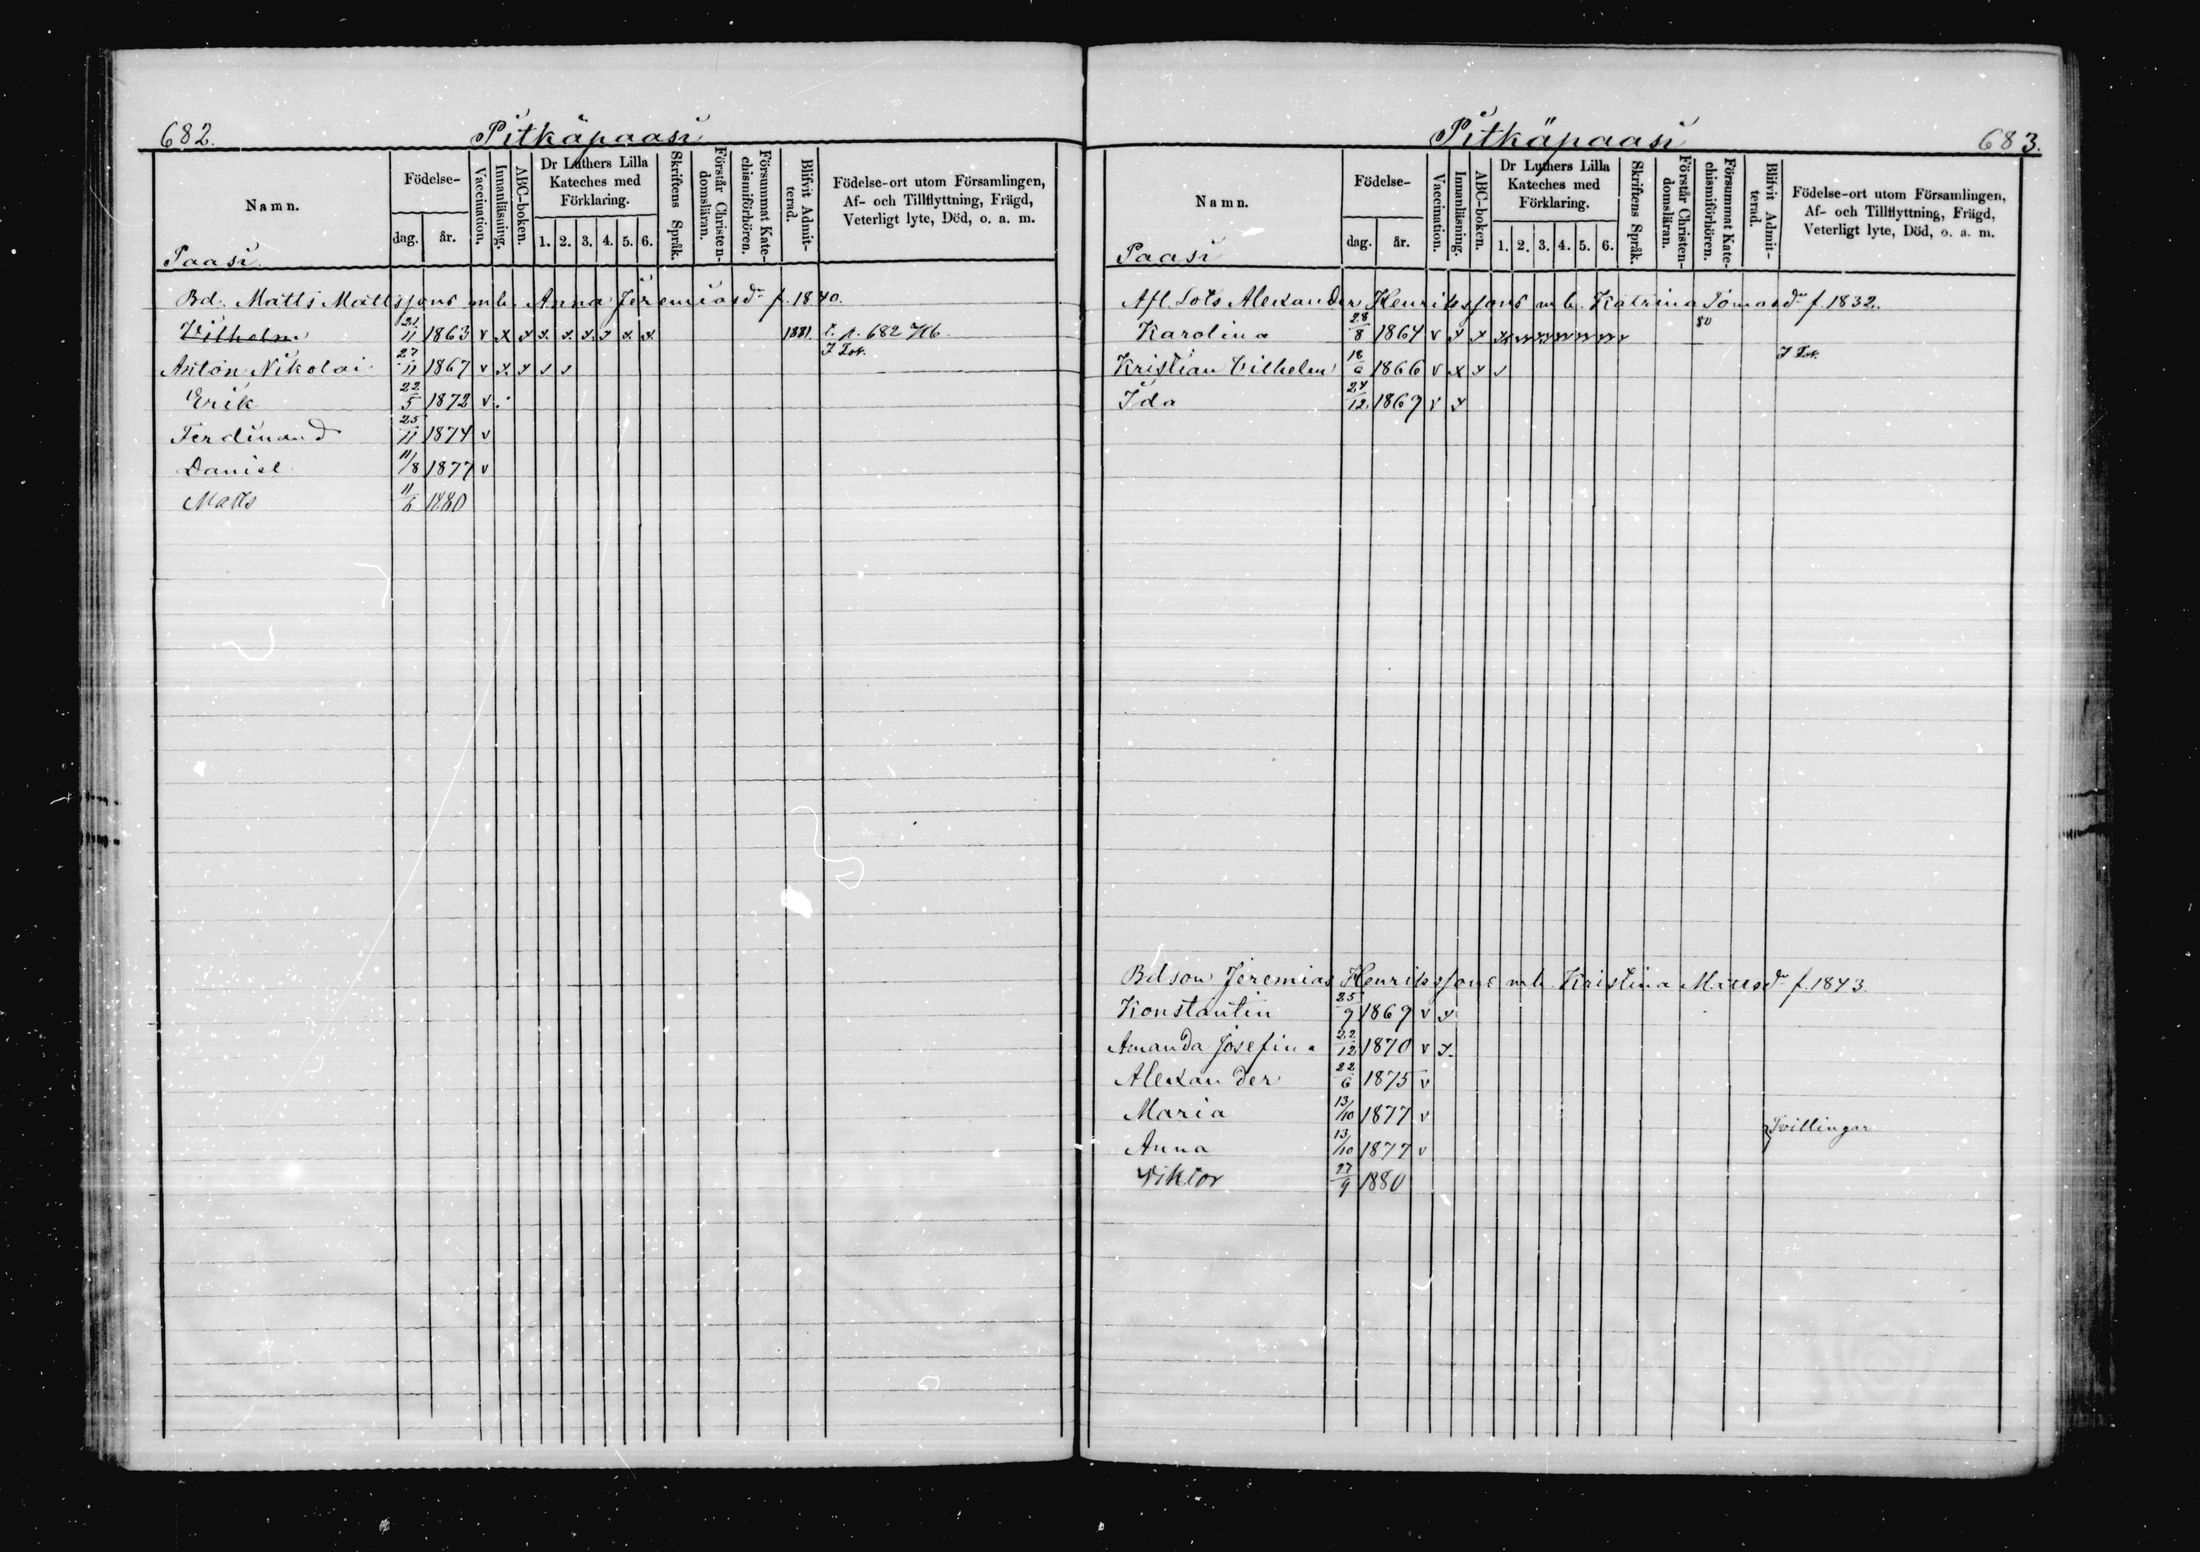 682. Pitkäpaasi
Namn. Födelse- dag. år. Vaccination. Innanläsning. ABC-boken. Dr Luthers Lilla Kateches med Förklaring. 1. 2. 3. 4. 5. 6. Skriftens Språk. Förstår Christendomsläran. Försummat Katechismiförhören. Blifvit Admitterad. Födelse-ort utom Församlingen, Af- och Tillflyttning, Frägd, Veterligt lyte, Död, o. a. m.
Paasi
Bd. Matts Mattssons m.h. Anna Jeremiasdr f. 1840.
Vilhelm 21/11 1863 v x x x. x. x. x x. x. 1881. t. p. 682 Hb
Anton Nikolai 27/11 1867 v x. x x x
Erik 22/5 1872 v
Ferdinand 25/11 1874 v
Daniel 11/8 1877 v
Matts 11/6 1880
Pitkäpaasi 683.
Namn. Födelse- dag. år. Vaccination. Innanläsning. ABC-boken. Dr Luthers Lilla Kateches med Förklaring. 1. 2. 3. 4. 5. 6. Skriftens Språk. Förstår Christendomsläran. Försummat Katechismiförhören. Blifvit Admitterad. Födelse-ort utom Församlingen, Af- och Tillflyttning, Frägd, Veterligt lyte, Död, o. a. m.
Paasi
Afl. Lots Alexander Henrikssons m h. Katrina Tomasdr f. 1832.
Karolina 28/8 1864 v x x 80
Kristian Vilhelm 18/6 1866 v x x x
Ida 24/12 1869 v x
Bdson Jeremias Henrikssons m h. Kristina Mattsdr f. 1843.
Konstantin 25/9 1869 v x
Amanda Josefina 22/12 1870 v x.
Alexander 22/6 1875 v
Maria 13/10 1877 v
Tvillingar
Anna 13/10 1877 v
Viktor 27/9 1880